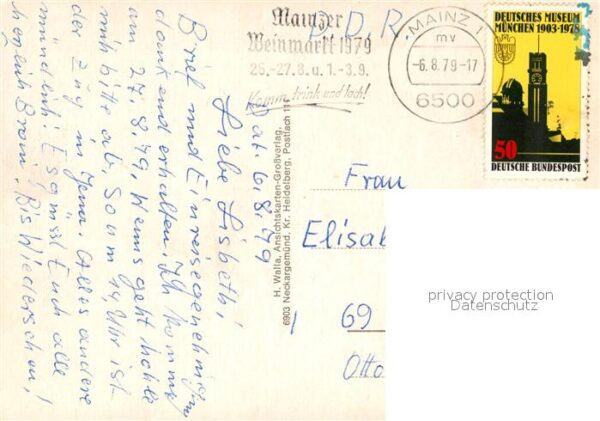 D.D.R.
Mainzer
Weinmarkt 1979
25.-27.8. u. 1.-3.9.
Komm, trink und lach!
MAINZ 1
mv
-6.8.79-17
6500
DEUTSCHES MUSEUM
MÜNCHEN 1903-1978
50
DEUTSCHE BUNDESPOST
Dat. 6.8.79
Liebe Lisbeth!
Brief und Einreisegenehmigung
dankend erhalten. Ich komme
am 27.8.79, wenns geht hole
mich bitte ab, so um 14 Uhr ist
der Zug in Jena. Alles andere
mündlich! Es grüßt Euch alle
herzlich Erani. Bis Wiedersehen!
H. Walla, Ansichtskarten-Großverlag,
6903 Neckargemünd, Kr. Heidelberg, Postfach 11
Frau
Elisab
69
Otto
privacy protection
Datenschutz